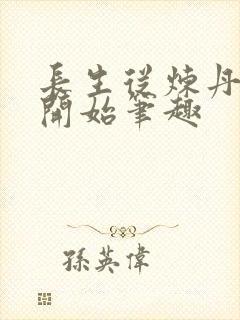 長生從煉丹
開始筆趣
孫英偉